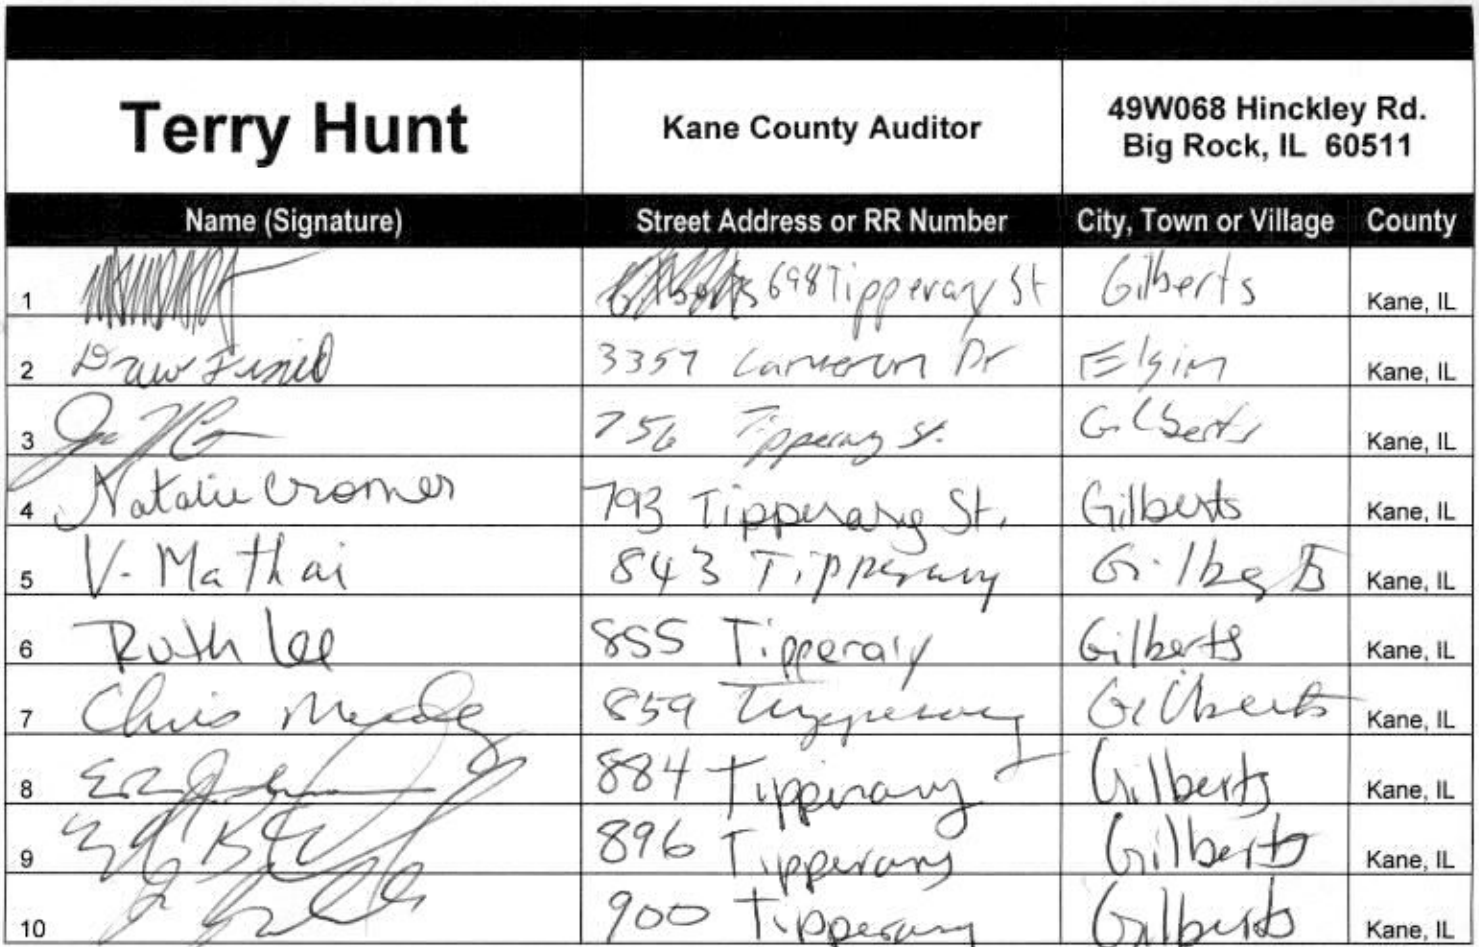 Terry Hunt Kane County Auditor 49W068 Hinckley Rd.
Big Rock, IL 60511
Name (Signature) Street Address or RR Number City, Town or Village County
1 698 Tipperary St Gilberts Kane, IL
2 Drew 3357 Cameron Dr Elgin Kane, IL
3 756 Tipperary St. Gilberts Kane, IL
4 Natalie Cromer 793 Tipperary St. Gilberts Kane, IL
5 V. Mathai 843 Tipperary Gilberts Kane, IL
6 Ruth Lee 855 Tipperary Gilberts Kane, IL
7 Chris 859 Tipperary Gilberts Kane, IL
8 884 Tipperary Gilberts Kane, IL
9 896 Tipperary Gilberts Kane, IL
10 900 Tipperary Gilberts Kane, IL